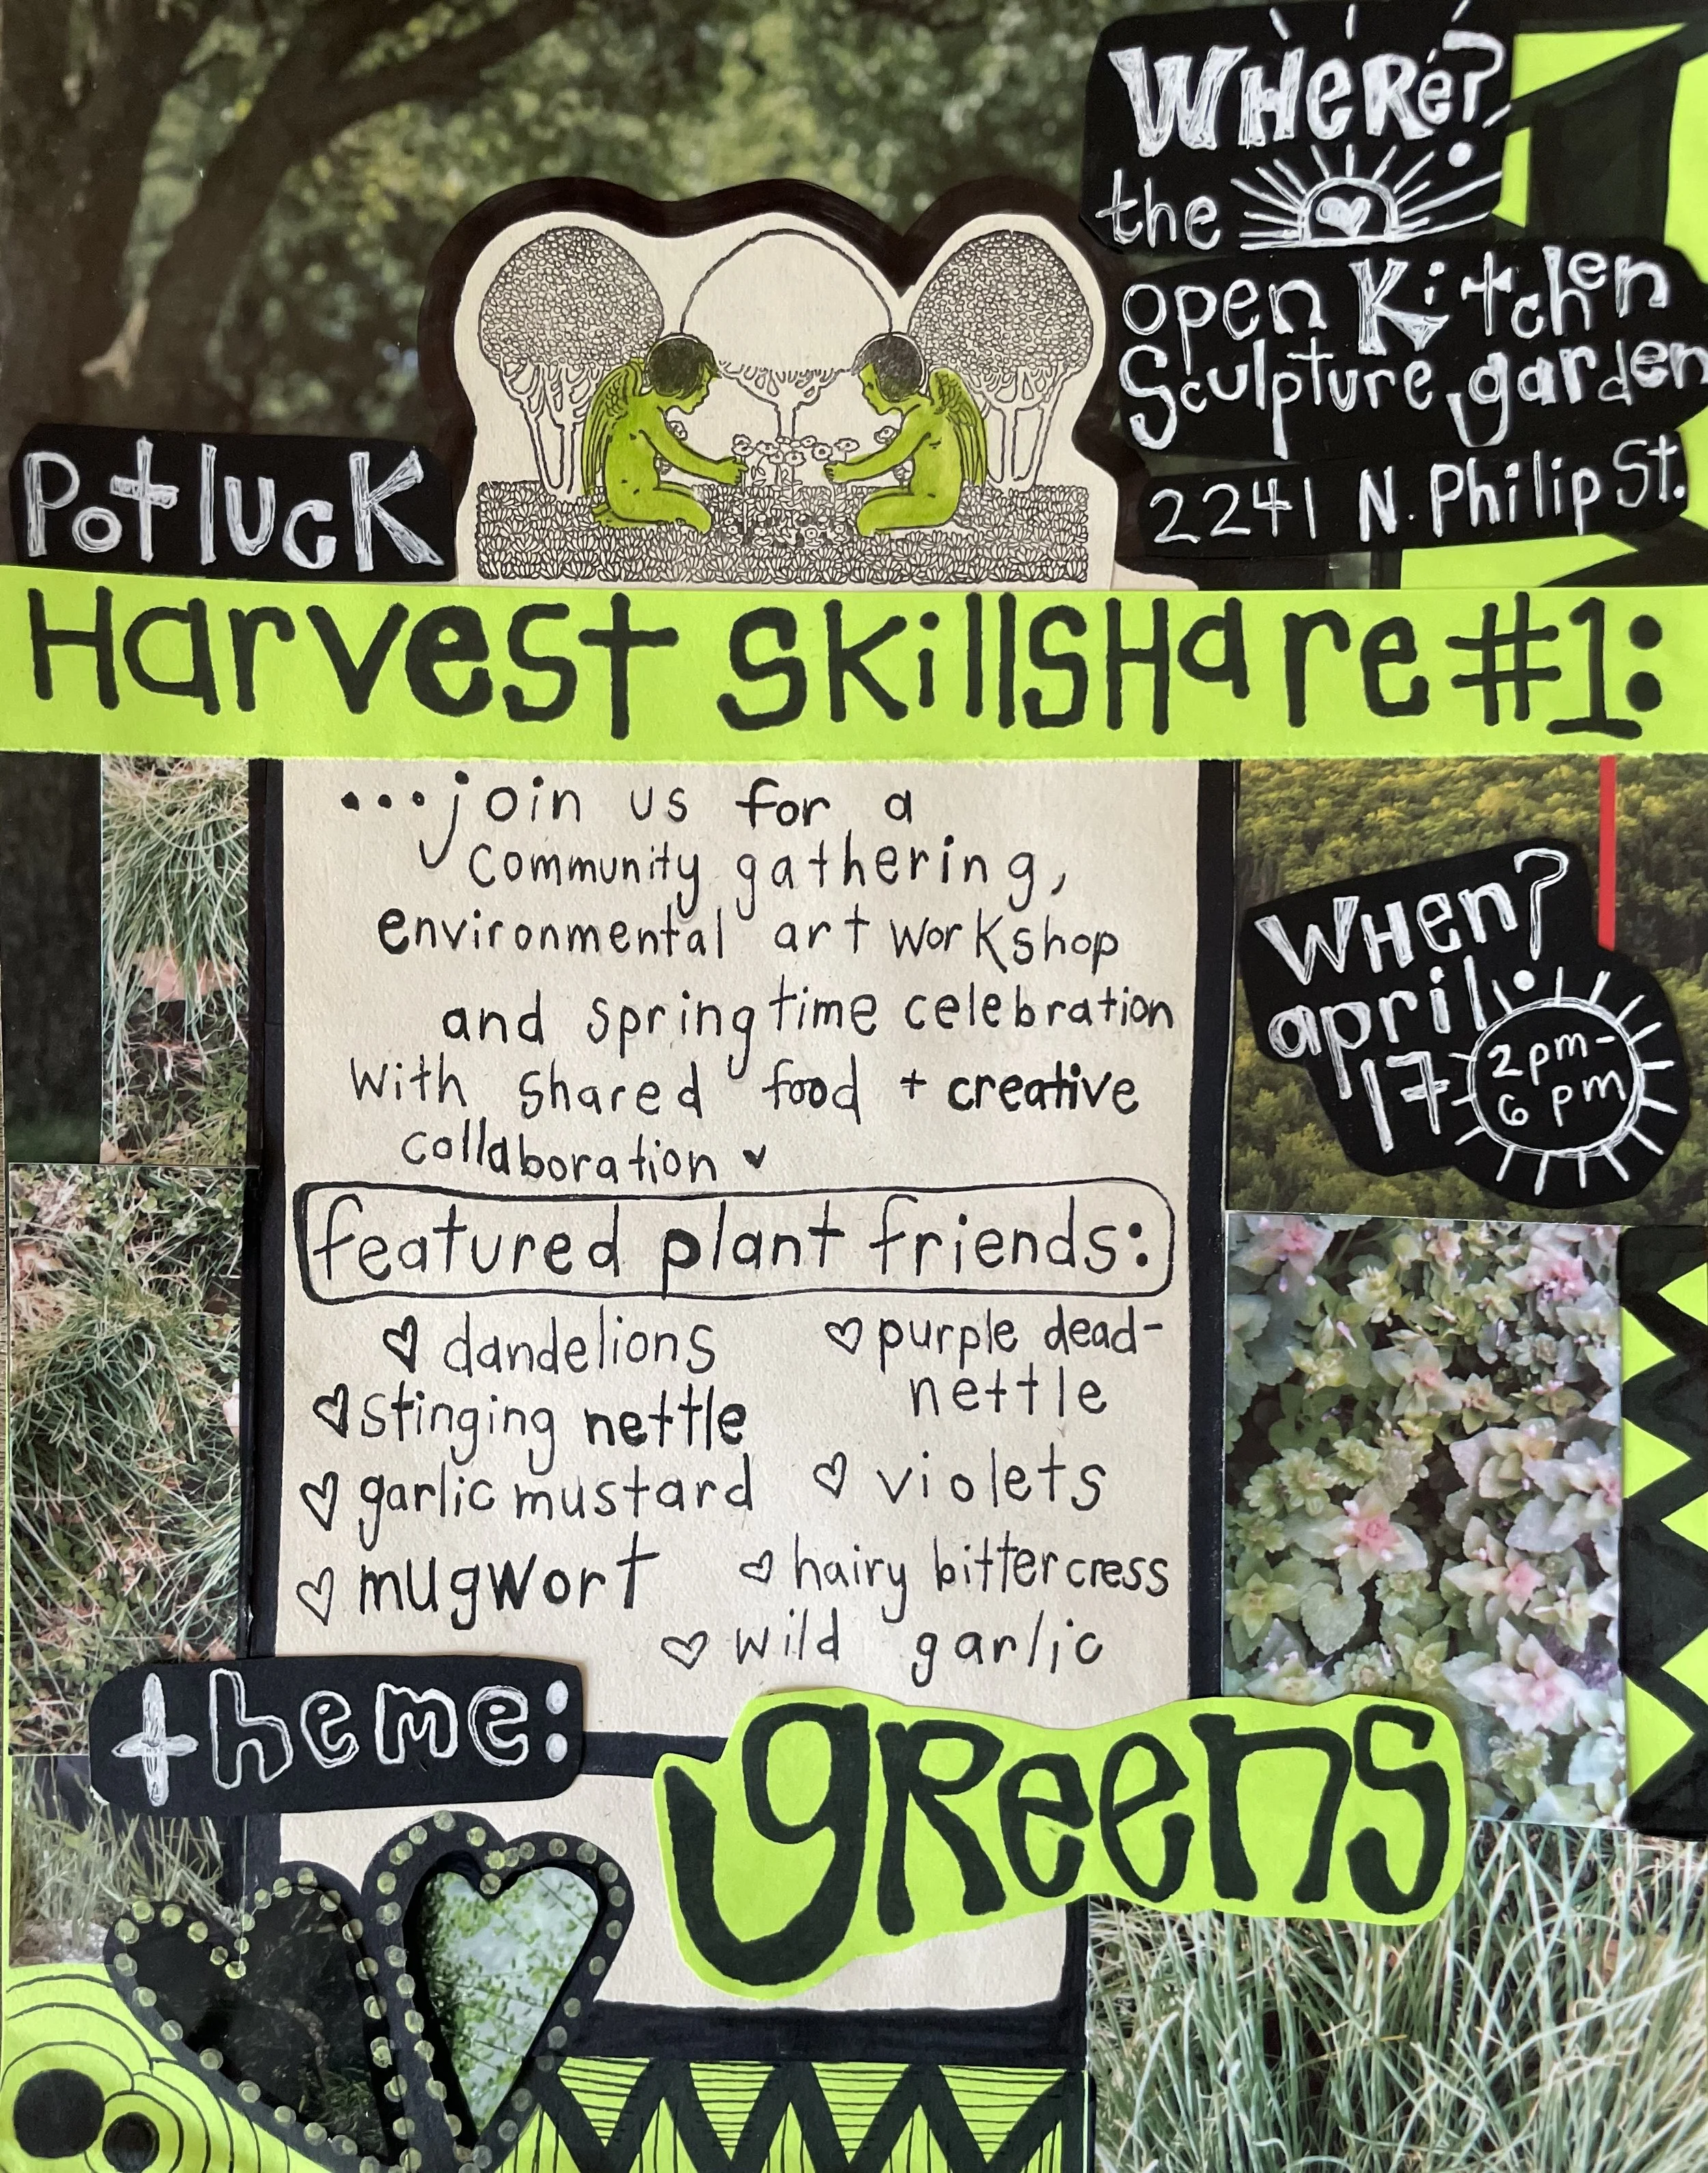 Where?
the
open Kitchen
Sculpture garden
2241 N. Philip St.
Potluck
Harvest Skillshare #1:
...join us for a
community gathering,
environmental art workshop
and springtime celebration
with shared food + creative
collaboration
When?
april
17
2pm-
6 pm
featured plant friends:
dandelions
stinging nettle
garlic mustard
mugwort
purple dead-
nettle
violets
hairy bittercress
wild garlic
theme:
greens